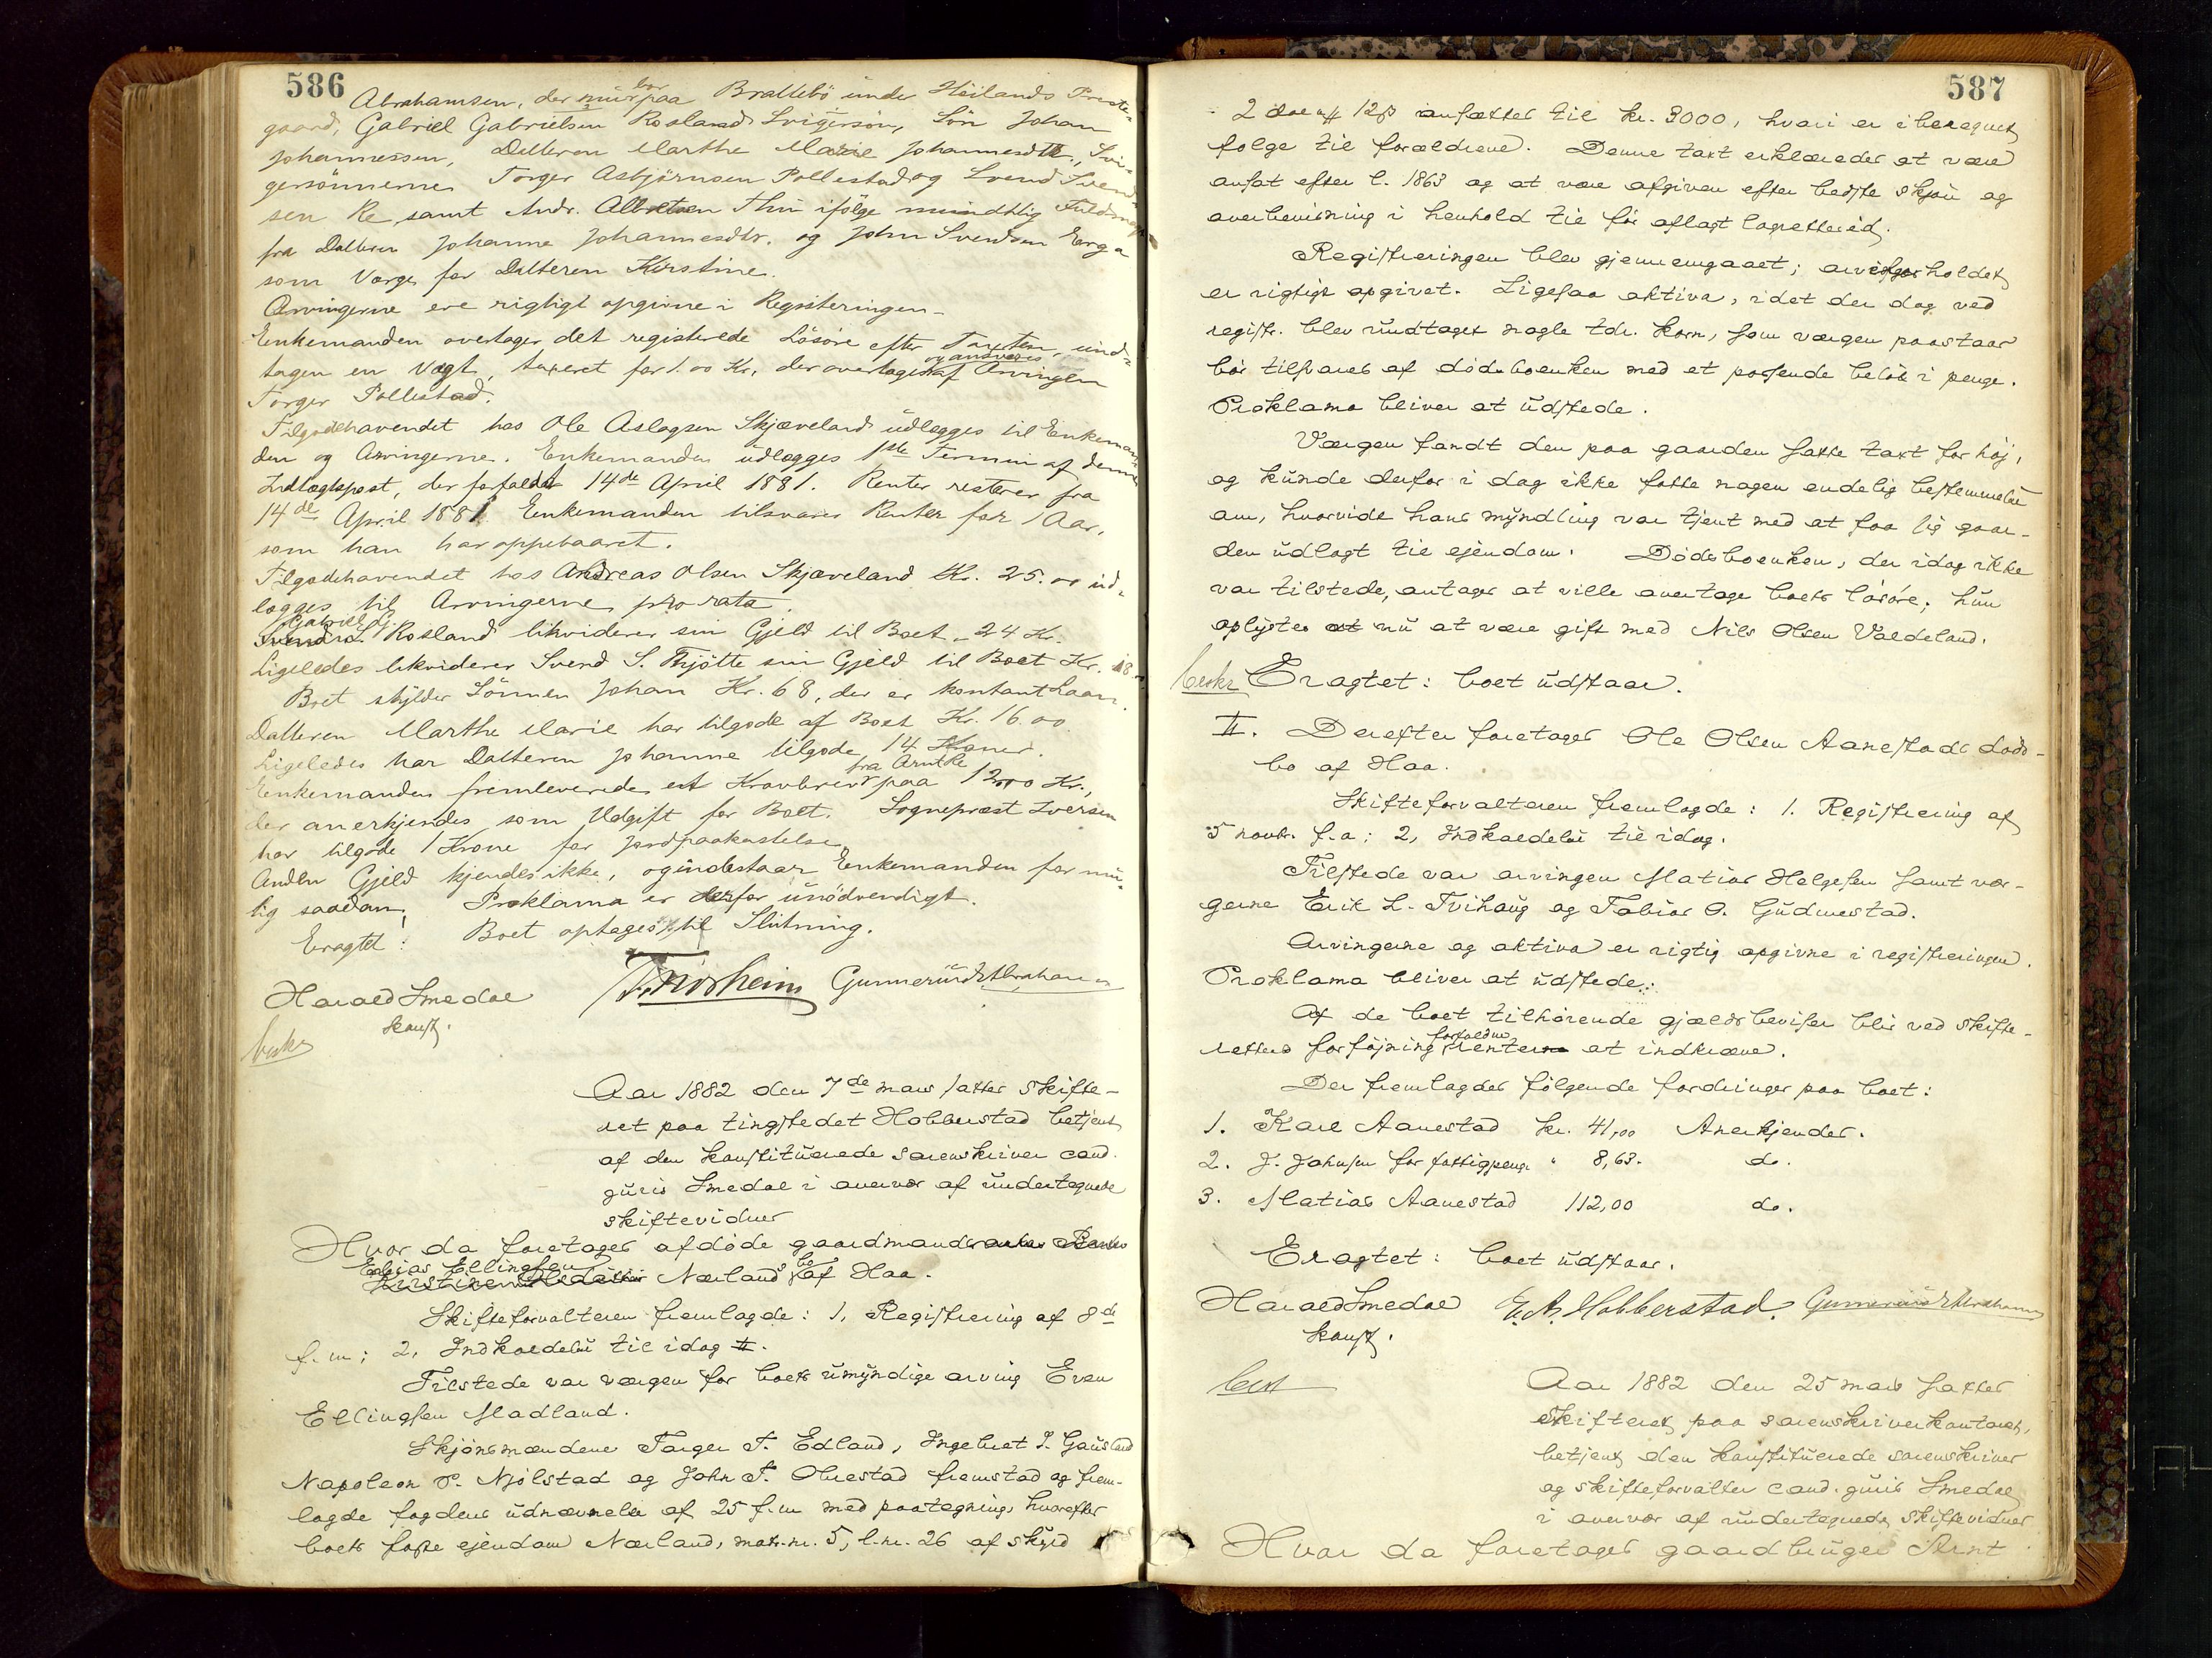 586
Abrahamsen, der bor paa Brattebö under Höilands Preste-
gaard, Gabriel Gabrielsen Rosland Svigersön, Sön Johan
Johannessen, Datteren Marthe Marie Johannesdtr., Svi-
gersönnerne Torger Asbjörnsen Pollestad og Svend Svend-
sen Re samt Andr. Albretsen Thu ifölge mundtlig Fuldmagt
fra Datteren Johanne Johannesdtr. og John Svendsen Erga
som Verge for Datteren Kirstine.
Arvingerne ere rigtigt opgivne i Registeringen.
Enkemanden overtager det registerede Lösöre efter Taxten, und-
tagen en Vogt, taxeret for 1.00 Kr, der overtages og ansvares af Arvingen
Torger Pollestad.
Tilgodehavendet hos Ole Aslagsen Skjæveland udlægges til Enkeman-
den og Arvingerne. Enkemanden udlægges 1ste Termin af denne
Indtægtspost, der forfaldt 14de April 1881. Renter resterer fra
14de April 1881. Enkemanden tilsvarer Renter for 1 Aar,
som han har oppebaaret.
Tilgodehavendet hos Andreas Olsen Skjæveland Kr. 25.00 ud-
lægges til Arvingerne pro rata.
Gabriel G. Rosland likviderer sin Gjeld til Boet - 24 Kr.
Ligeledes likviderer Svend S. Thjötte sin Gjeld til Boet Kr. 18.
Boet skylder Sönnen Johan Kr. 68, der er kontant Laan.
Datteren Marthe Marie har tilgode af Boet Kr. 16.00
Ligeledes har Datteren Johanne tilgode 14 Kroner.
Enkemanden fremleverede et Kravbrev fra Arntke paa 1200 Kr.,
der anerkjendes som Udgift for Boet. Sogneprest Iversen
har tilgode 1 Krone for Jordpaakastelse.
Anden Gjeld kjendes ikke, og indestaar Enkemanden for mu-
lig saadan. Proklama er derfor unödvendigt.
Eragtet: Boet optages til Slutning.
Harald Smedal
konst.
T. Norheim Gunnerius Abrahamsen
beskr
Aar 1882 den 7de mars sattes skifte-
ret paa tingstedet Hobberstad betjent
af den konstituerede sorenskriver cand.
juris Smedal i overvær af undertegnede
skiftevidner
Hvor da foretages afdöde gaardmands
Elias Ellingsen Nærlands bo af Haa.
Skifteforvalteren fremlagde: 1, Registrering af 8de
f. m; 2, Indkaldelse til idag.
Tilstede var værgen for boets umyndige arving Even
Ellingsen Madland.
Skjönsmændene Torger T. Edland, Ingebret I. Gausland
Napoleon P. Njölstad og John T. Obrestad fremstod og frem-
lagde fogdens udnævnelse af 25 f. m med paategning, hvorefter
boets faste ejendom Nærland, matr. nr. 5, l. nr. 26 af skyld
587
2 daler 12 ß ansættes til kr. 3000, hvori er iberegnet
følge til forældrene. Denne taxt erklæredes at være
ansat efter l. 1863 og at være afgiven efter bedste skjön og
overbevisning i henhold til för aflagt lagretteed.
Registreringen blev gjennemgaaet; arveforholdet
er rigtigt opgivet. Ligesaa aktiva, idet der dog ved
registr. blev undtaget nogle tdr. korn, som værgen paastaar
bör tilsvares af dödsboenken med et passende belöb i penge.
Proklama bliver at udstede.
Værgen fandt den paa gaarden satte taxt for höj,
og kunde derfor i dag ikke fatte nogen endelig bestemmelse
om, hvorvidt hans myndling var tjent med at faa sig gaar-
den udlagt til ejendom. Dödsboenken, der idag ikke
var tilstede, antages at ville overtage boets lösöre; hun
oplystes nu at være gift med Nils Olsen Valdeland.
beskr Eragtet: boet udstaar.
II. Derefter foretages Ole Olsen Aanestads döds-
bo af Haa.
Skifteforvalteren fremlagde: 1. Registrering af
5 novbr. f. a; 2, Indkaldelse til idag.
Tilstede var arvingen Matias Helgesen samt vær-
gerne Erik L. Tvihaug og Tobias O. Gudmestad.
Arvingerne og aktiva er rigtig opgivne i registreringen.
Proklama bliver at udstede.
Af de boet tilhörende gjældsbeviser blir ved skifte-
rettens forföjning forfaldne renter at indkræve.
Der fremlagdes fölgende fordringer paa boet:
1. Karl Aanestad kr. 41,00 Anerkjendes.
2. J. Johnsen for fattigpenge " 8,63. do.
3. Matias Aanestad 112,00 do.
Eragtet: boet udstaar.
Harald Smedal E. A. Hobberstad. Gunnerius Abrahamsen
konst.
besk
Aar 1882 den 25 mars sattes
skifteret paa sorenskriverkontoret,
betjent den konstituerede sorenskriver
og skifteforvalter cand. juris Smedal
i overvær af undertegnede skiftevidner
Hvor da foretages gaardbruger Arnt